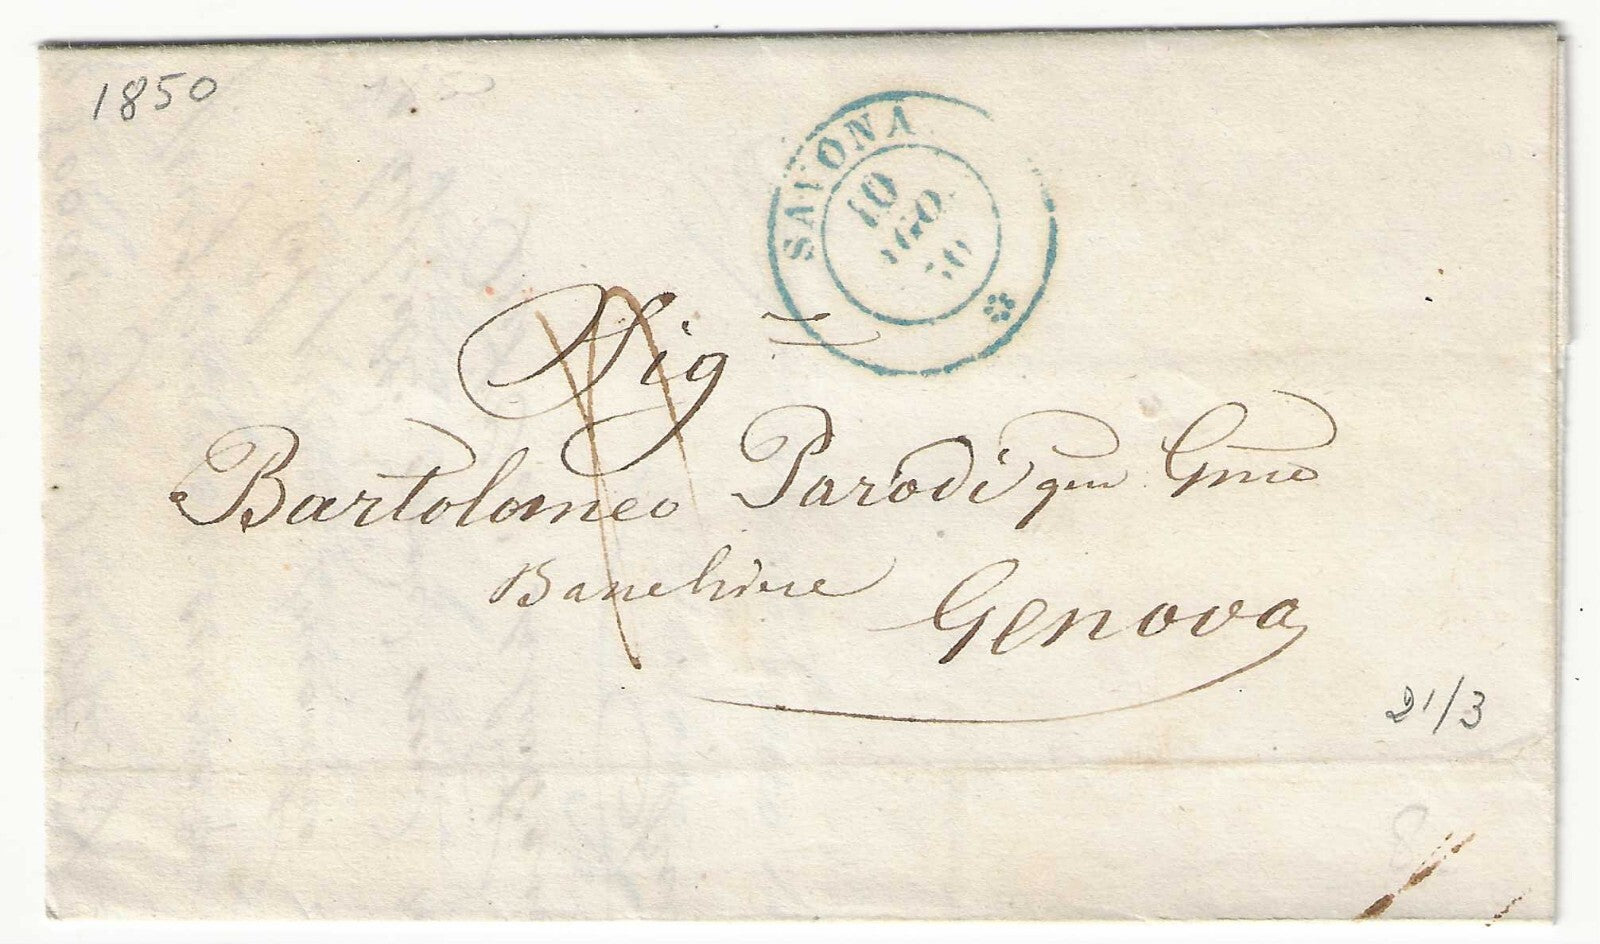 1850
SAVONA
10
AGO
50
Sig
Bartolomeo Parodi qm Gmo
Banchiere
Genova
21/3
8